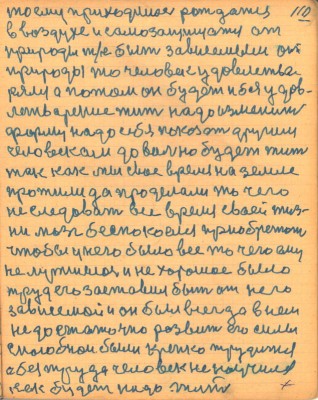 110
то ему приходилося рождатся
в воздухе и самозащищатся от
природы т/е быть зависемым от
природы то человек удовлетво
рял а потом он будет и без удов-
летварение жить надо изменить
форму надо себя показать другим
человеком довольно будет жить
так как мы свое время на земле
прожили да проделали то чего
не следовать все время своей жиз-
ни мозг беспокоился приобретать
чтобы у него было все то чего ему
не нужно и не хорошое было
труд его заставил быть от него
зависемой и он был всегда в нем
недостаточно развит его силы
способной были крепко трудится
а без труда человек не научился
как будет надо жить